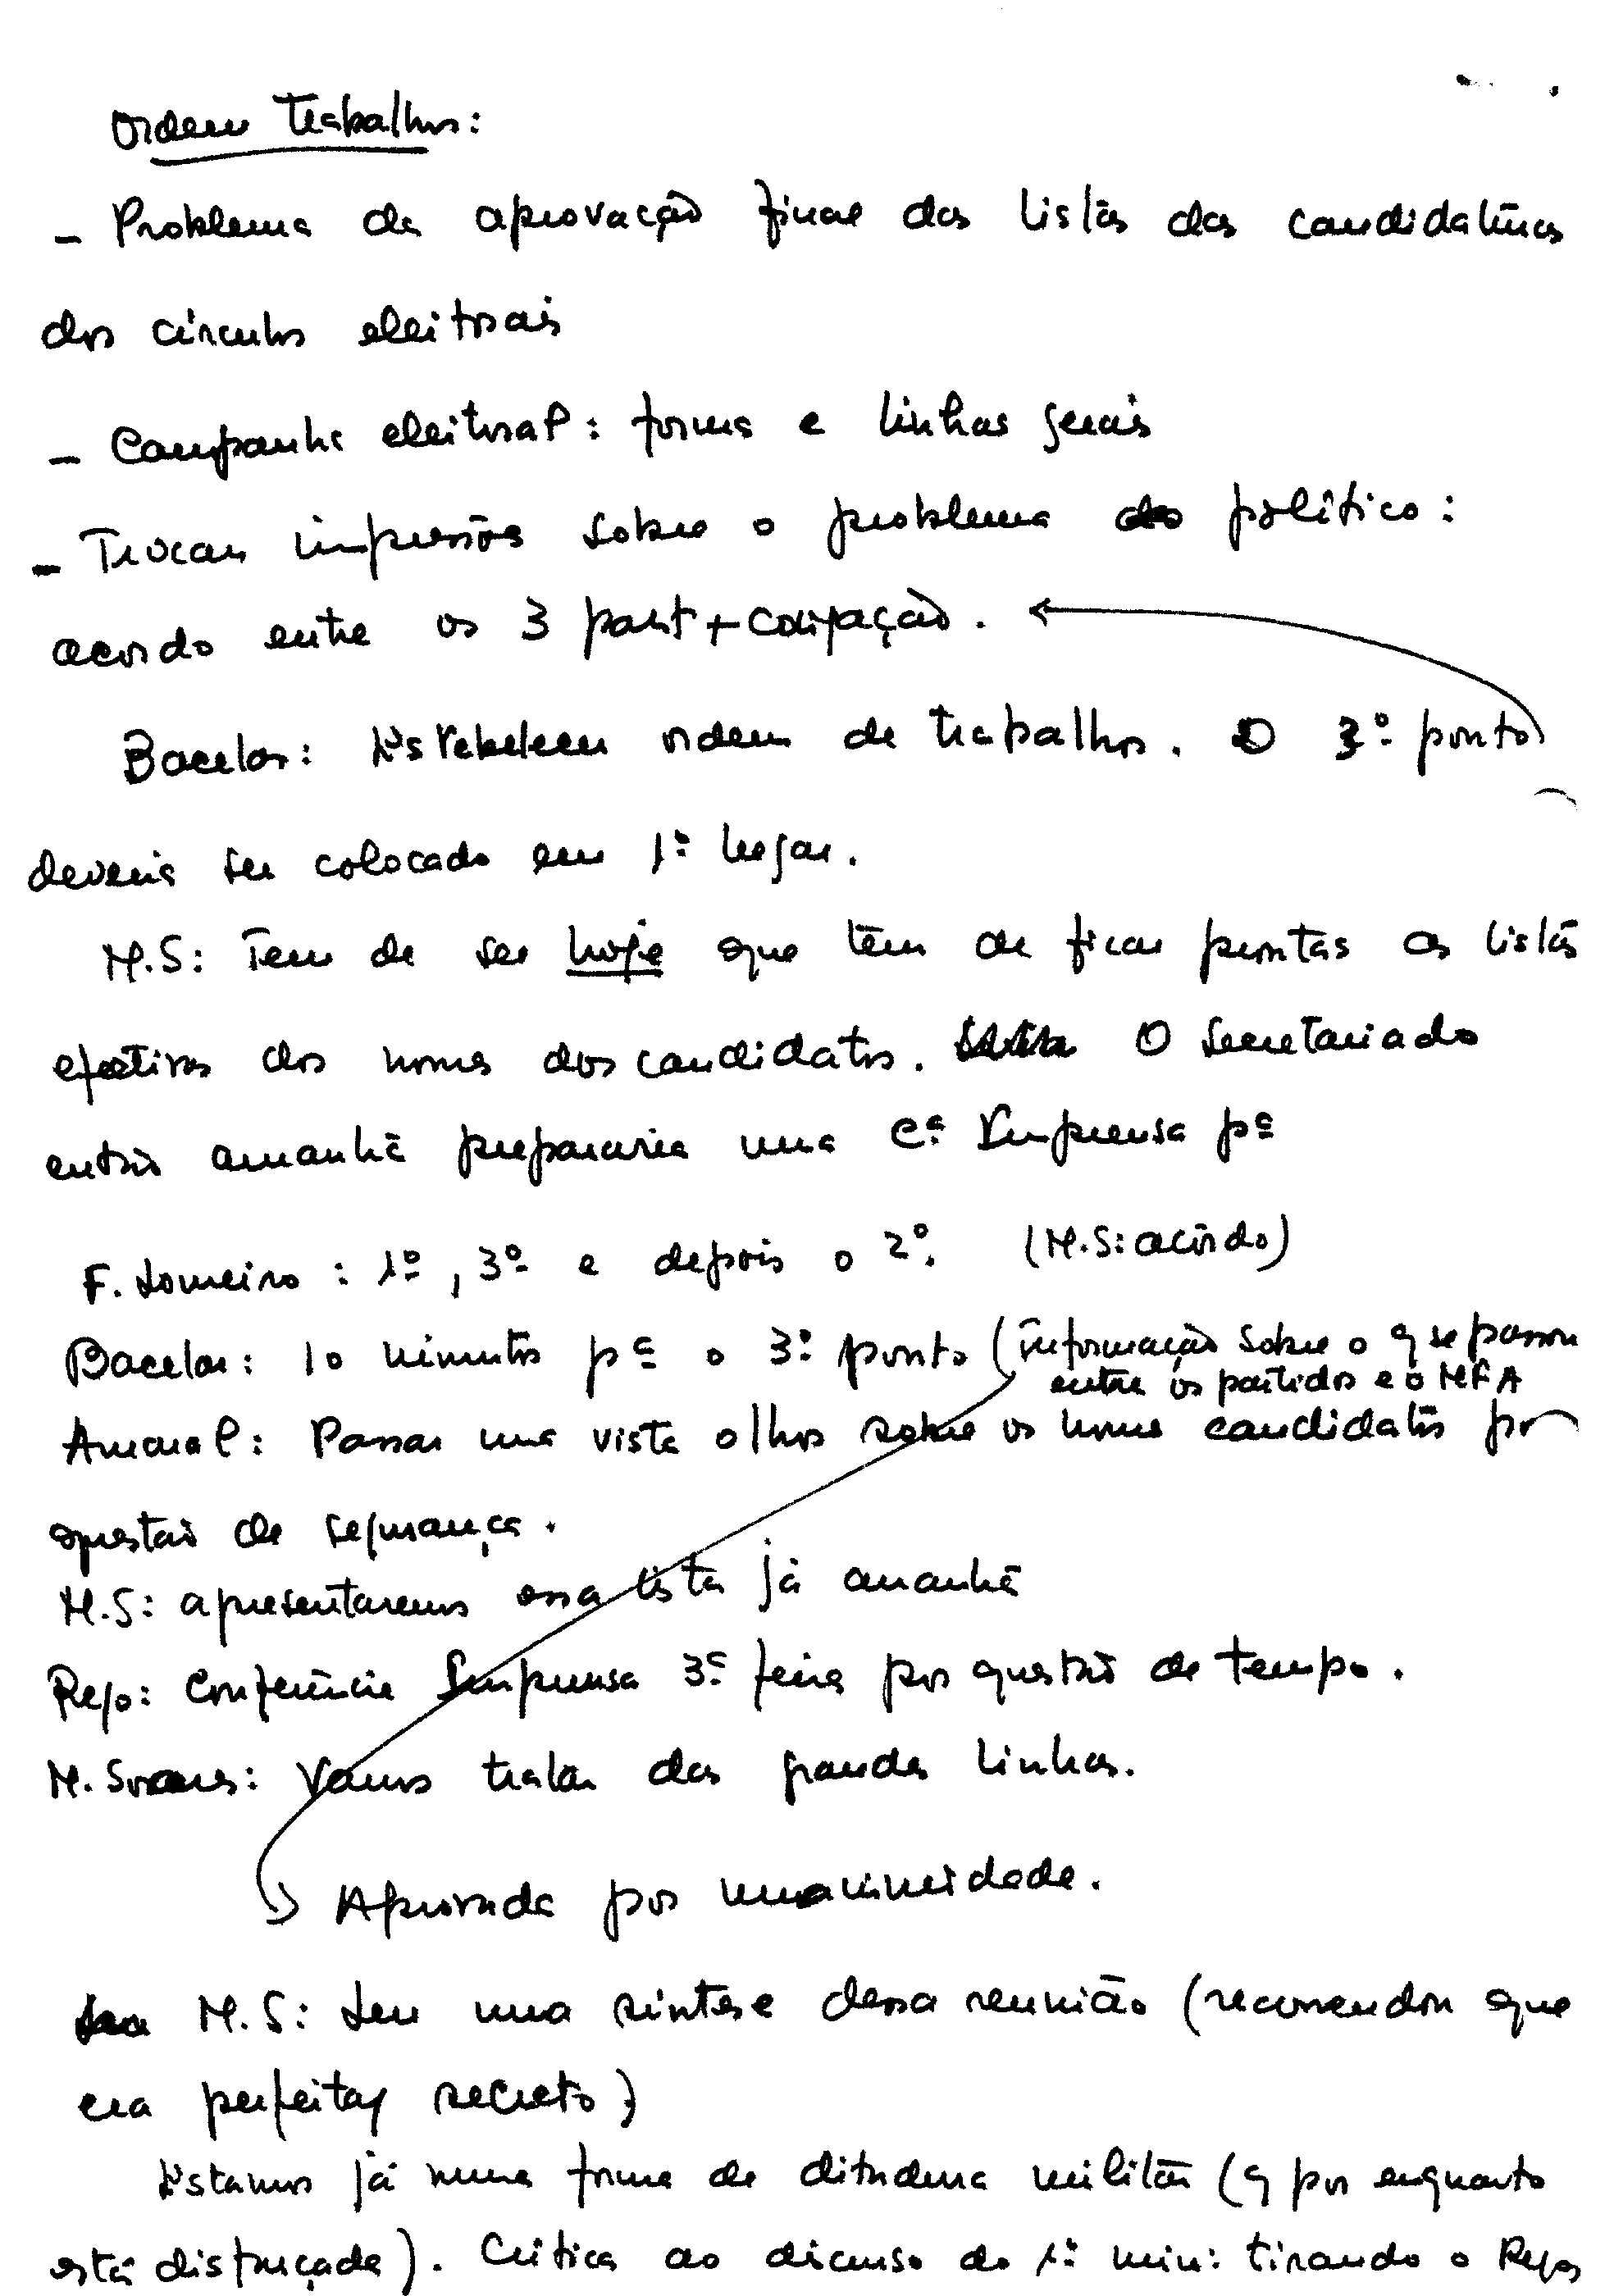 Ordem Trabalhos:
- Problema da aprovação final das listas das candidaturas
dos círculos eleitorais
- Campanha eleitoral: forma e linhas gerais
- Trocar impressões sobre o problema do político:
acordo entre os 3 part + coligação.
Bacelar: Estabelecer ordem de trabalhos. O 3º ponto
deveria ser colocado em 1º lugar.
M.S: Tem de ser hoje que têm de ficar prontas as listas
efectivas dos nomes dos candidatos. O Secretariado
então amanhã prepararia uma Cª Imprensa pª
F. Loureiro: 1º, 3º e depois o 2º. (M.S: acôrdo)
Bacelar: 10 minutos pª o 3º ponto (informação sobre o q se passou
entre os partidos e o MFA
Amaral: Passar uma vista olhos sobre os nomes candidatos por
questão de segurança.
M.S: apresentaremos essa lista já amanhã
Rego: Conferência Imprensa 3ª feira por questão de tempo.
M. Soares: Vamos tratar das grandes linhas.
Aprovada por unanimidade.
M.S: Leu uma síntese dessa reunião (recomendou que
era perfeitay secreto)
Estamos já numa forma de ditadura militar (q por enquanto
está disfarçada). Crítica ao discurso do 1º min: tirando o Rego